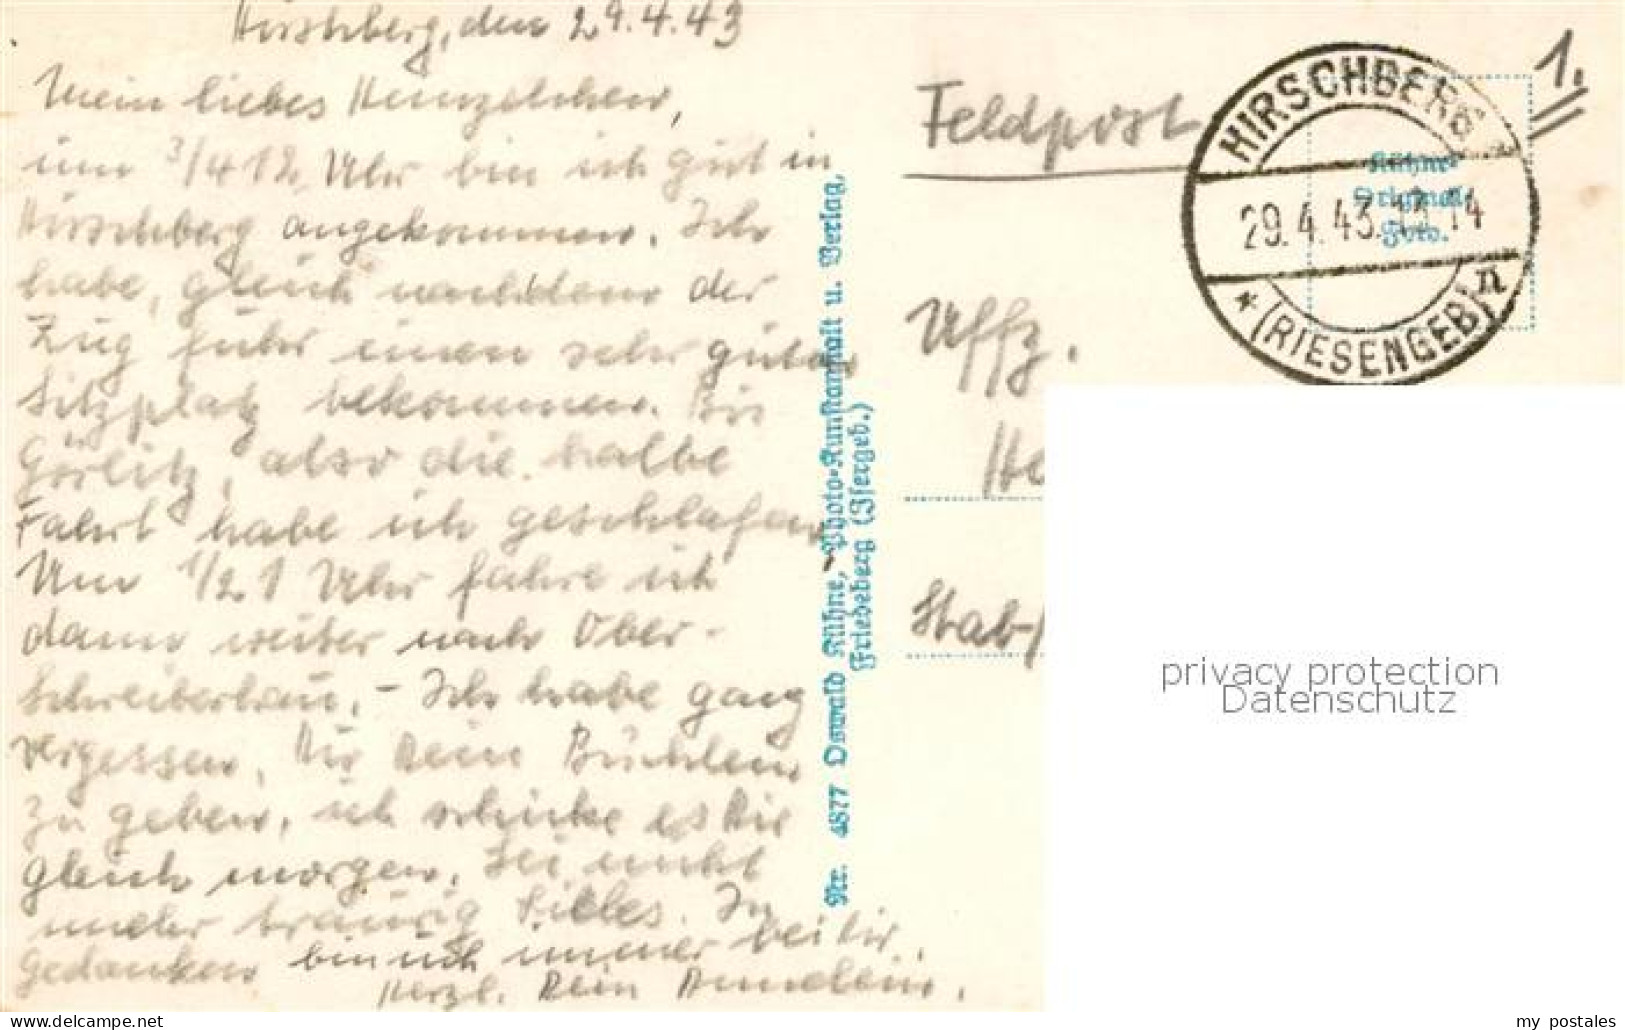 Hirschberg, den 29.4.43
Mein liebes Heinzelchen,
um 3/4 12 Uhr bin ich gut in
Hirschberg angekommen. Ich
habe, gleich nachdem der
Zug fuhr einen sehr guten
Sitzplatz bekommen. Bis
Görlitz, also die halbe
Fahrt habe ich geschlafen
Um 1/2 1 Uhr fahre ich
dann weiter nach Ober-
Schreiberhau. – Ich habe ganz
vergessen, Dir Dein Büchlein
zu geben, ich schicke es Dir
gleich morgen. Sei nicht
mehr traurig Liebes. In
Gedanken bin ich immer bei Dir.
Herzl. Dein Annelein.
Nr. 4877 Oswald Kühne, Photo-Kunstanstalt u. Verlag,
Friedeberg (Isergeb.)
1.
Feldpost
HIRSCHBERG
29.4.43.13-14
* (RIESENGEB) n
Kühne
Original
Foto.
Uffz.
He
Stab-/
privacy protection
Datenschutz
my postales